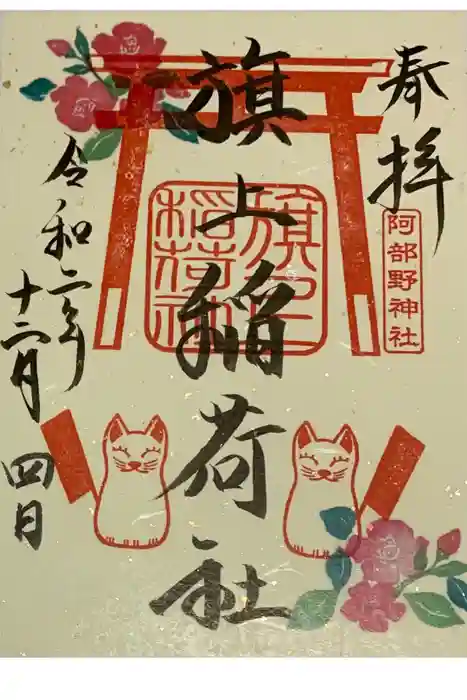 奉拝
阿部野神社
旗上稲荷社
旗上稲荷社
令和二年
十二月
四日